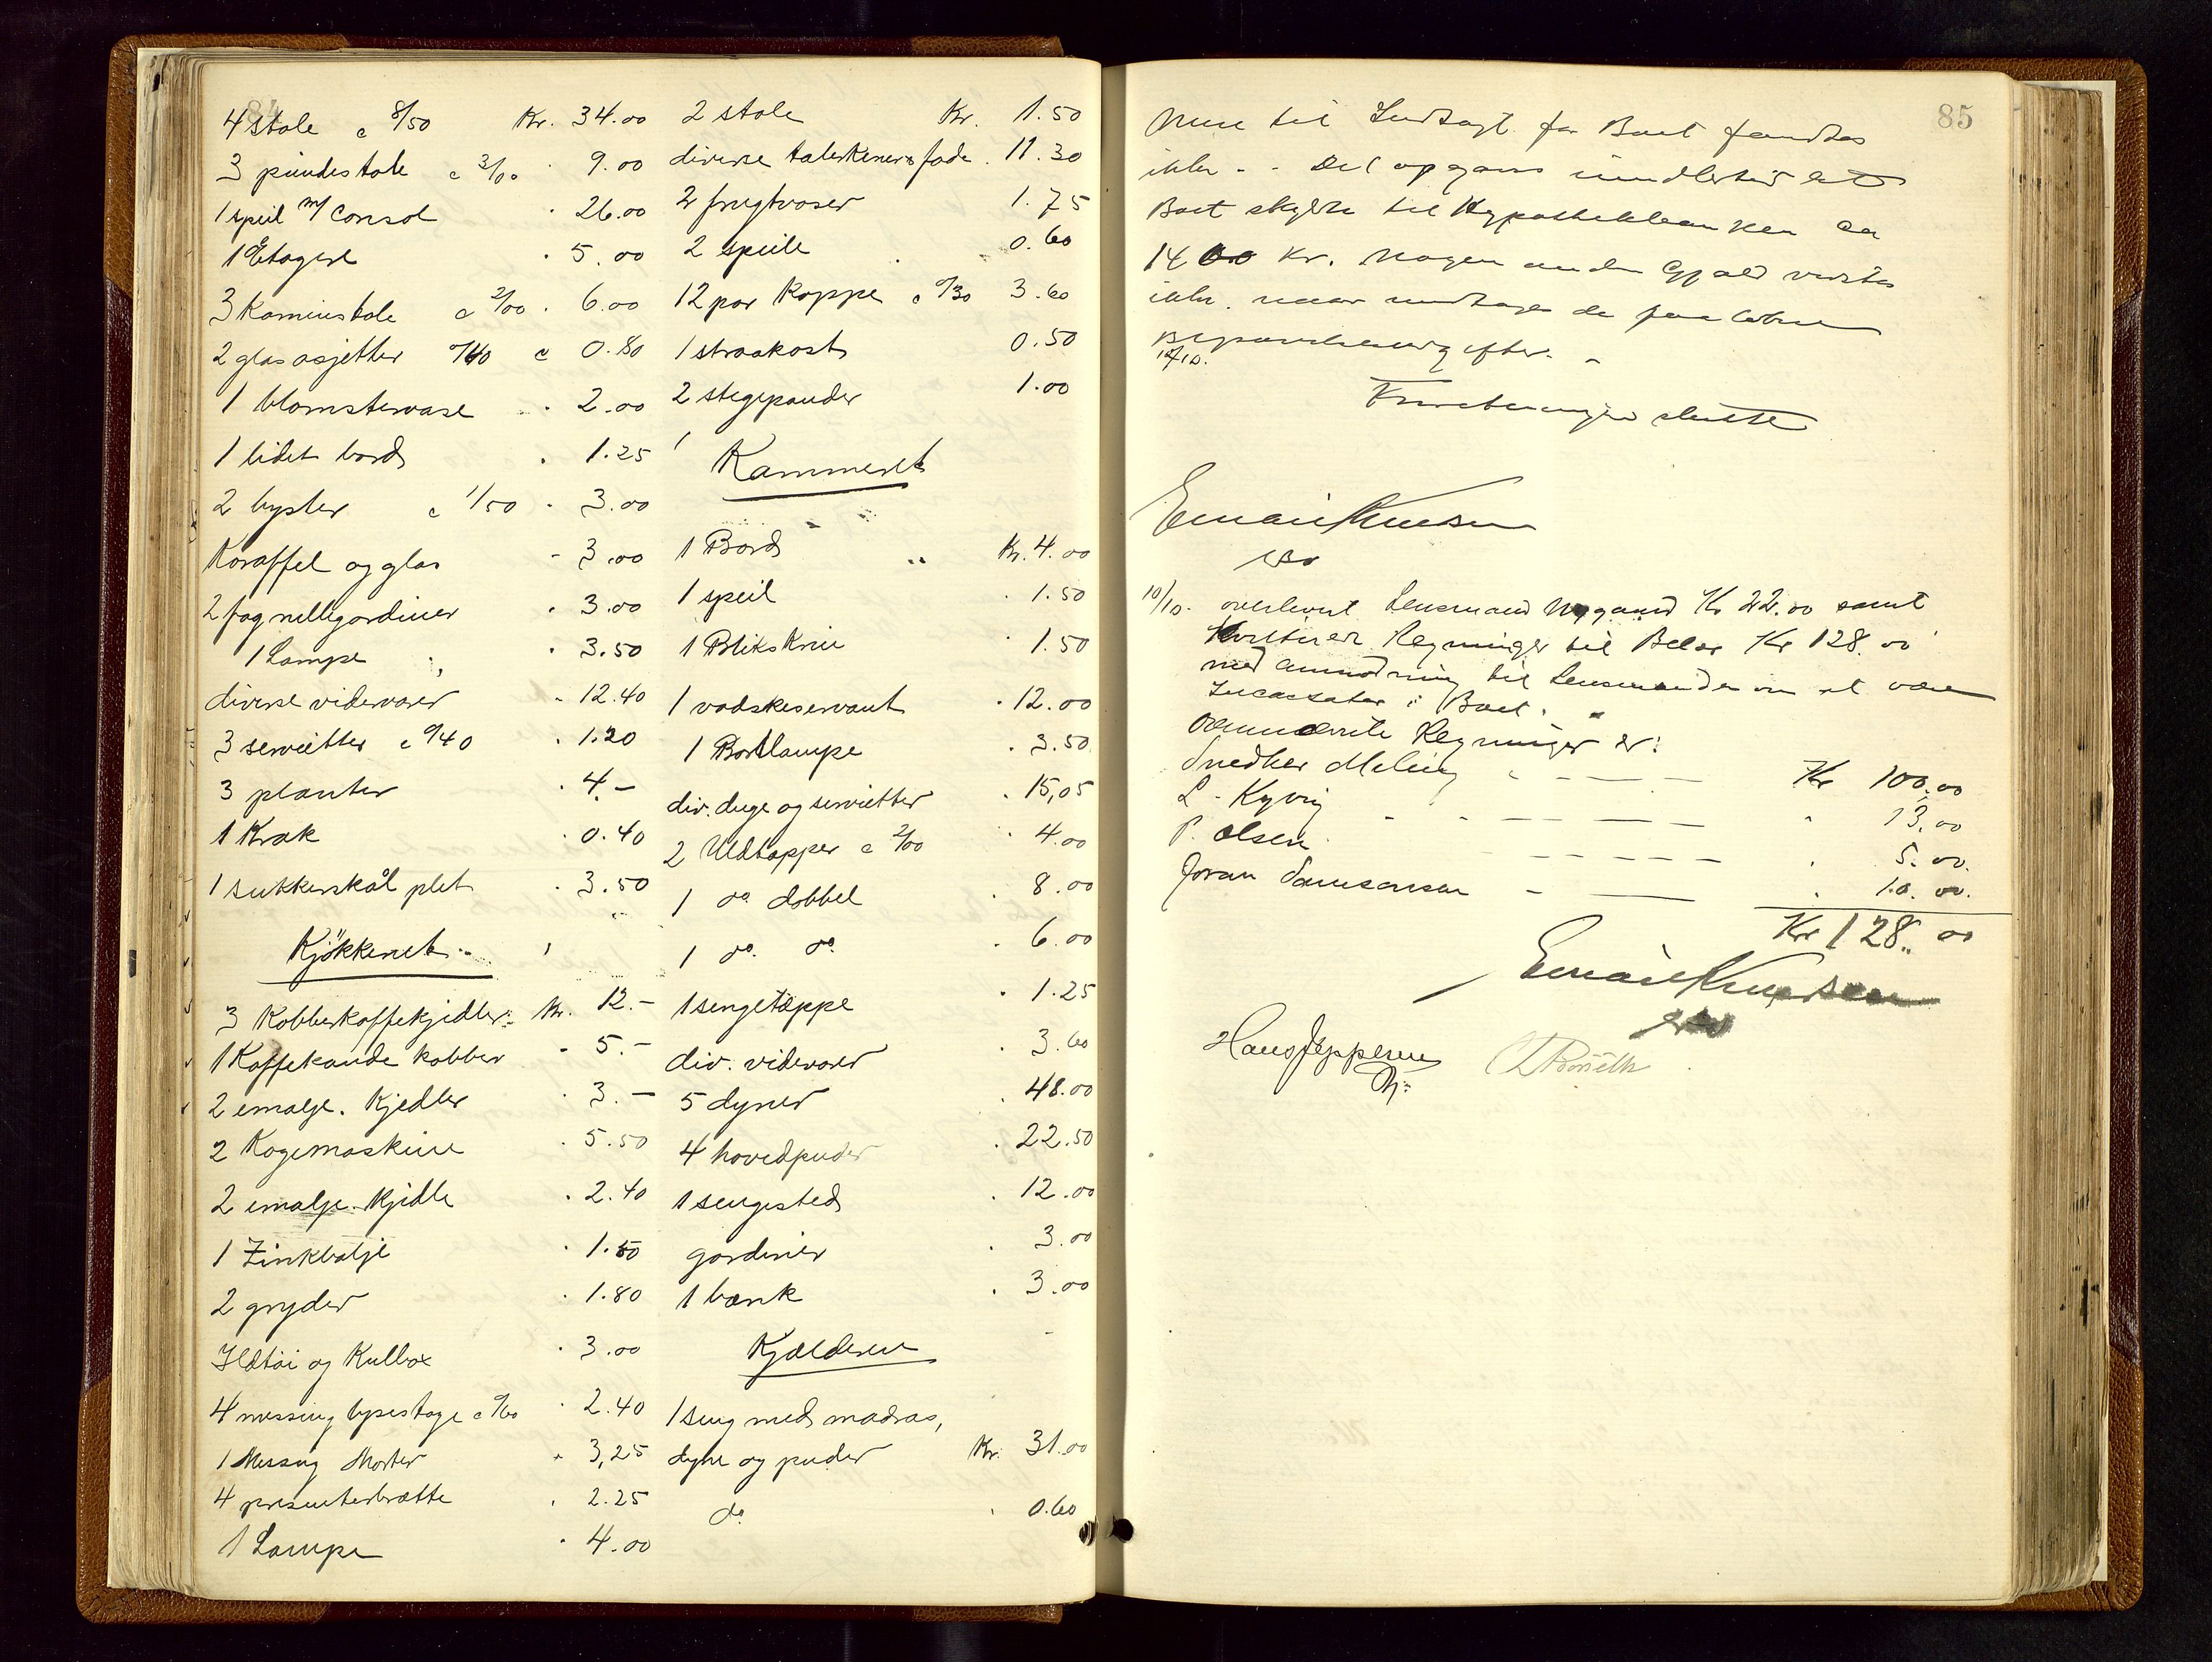 84
4 stole a 8/50 Kr. 34.00
3 pindestole a 3/00 · 9.00
1 speil m/ Consol · 26.00
1 Etagere · 5.00
3 Kaminstole a 2/00 · 6.00
2 glas asjetter 0/40 a 0.80
1 blomstervase · 2.00
1 lidet bord · 1.25
2 byster a 1/50 · 3.00
Karaffel og glas - 3.00
2 fag rullgardiner · 3.00
1 Lampe · 3.50
diverse videvarer - 12.40
3 servietter a 0/40 · 1.20
3 planter · 4.-
1 Krak · 0.40
1 sukkerskål plet · 3.50
Kjøkkenet
3 Kobberkaffekjedler Kr. 12.-
1 Kaffekande kobber - 5.-
2 emalje. Kjedler · 3.-
2 Kogemaskine · 5.50
2 emalje. Kjedle · 2.40
1 Zinkbalje · 1.50
2 gryder · 1.80
Ildtøi og Kulbox · 3.00
4 messing lysestage a 0/60 · 2.40
1 Messing Morter · 3,25
4 presenterbrætte · 2.25
1 Lampe · 4.00
2 stole Kr. 1.50
diverse talerkener & fade . 11.30
2 frugtvaser 1.75
2 speile 0.60
12 par Kopper a 0/30 3.60
1 straakost 0.50
2 stegepander 1.00
Kammeret
1 Bord Kr. 4.00
1 speil · 1.50
1 Blikskrin · 1.50
1 vadskeservant · 12.00
1 Bordlampe · 3.50
div. duge og servietter · 15,05
2 Uldtæpper a 2/00 · 4.00
1 do dobbel · 8.00
1 do. do. · 6.00
1 sengetæppe · 1.25
div. videvarer · 3.60
5 dyner · 48.00
4 hovedpuder · 22.50
1 sengested · 12.00
gardiner · 3.00
1 bænk · 3.00
Kjælderen
1 seng med madras,
dyne og puder Kr. 31.00
do. · 0.60
85
Mere til Indtægt for Boet fandtes
ikke. - Det opgaves imidlertid at
Boet skylder til Hypothekbanken ca
1400 Kr. Nogen anden Gjæld vidstes
ikke. naar undtages de paaløbne
Begravelsesudgifter. -
10/10.
Forretningen sluttet
Emair Knudsen
10/10. overlevert Lensmand Nygaard Kr 22.00 samt
Kvitterede Regninger til Beløb Kr 128.00
med anmodning til Lensmanden om at være
Incassator i Boet.
Ovennævnte Regninger er:
Snedker Meling - - - Kr 100,00
L. Kyvig - - - - 13,00
P. Olsen - - - - · 5.00.
Joran Samsonsen - - · 10.00.
Kr 128.00
Emair Knudsen
Hans Jeppesen